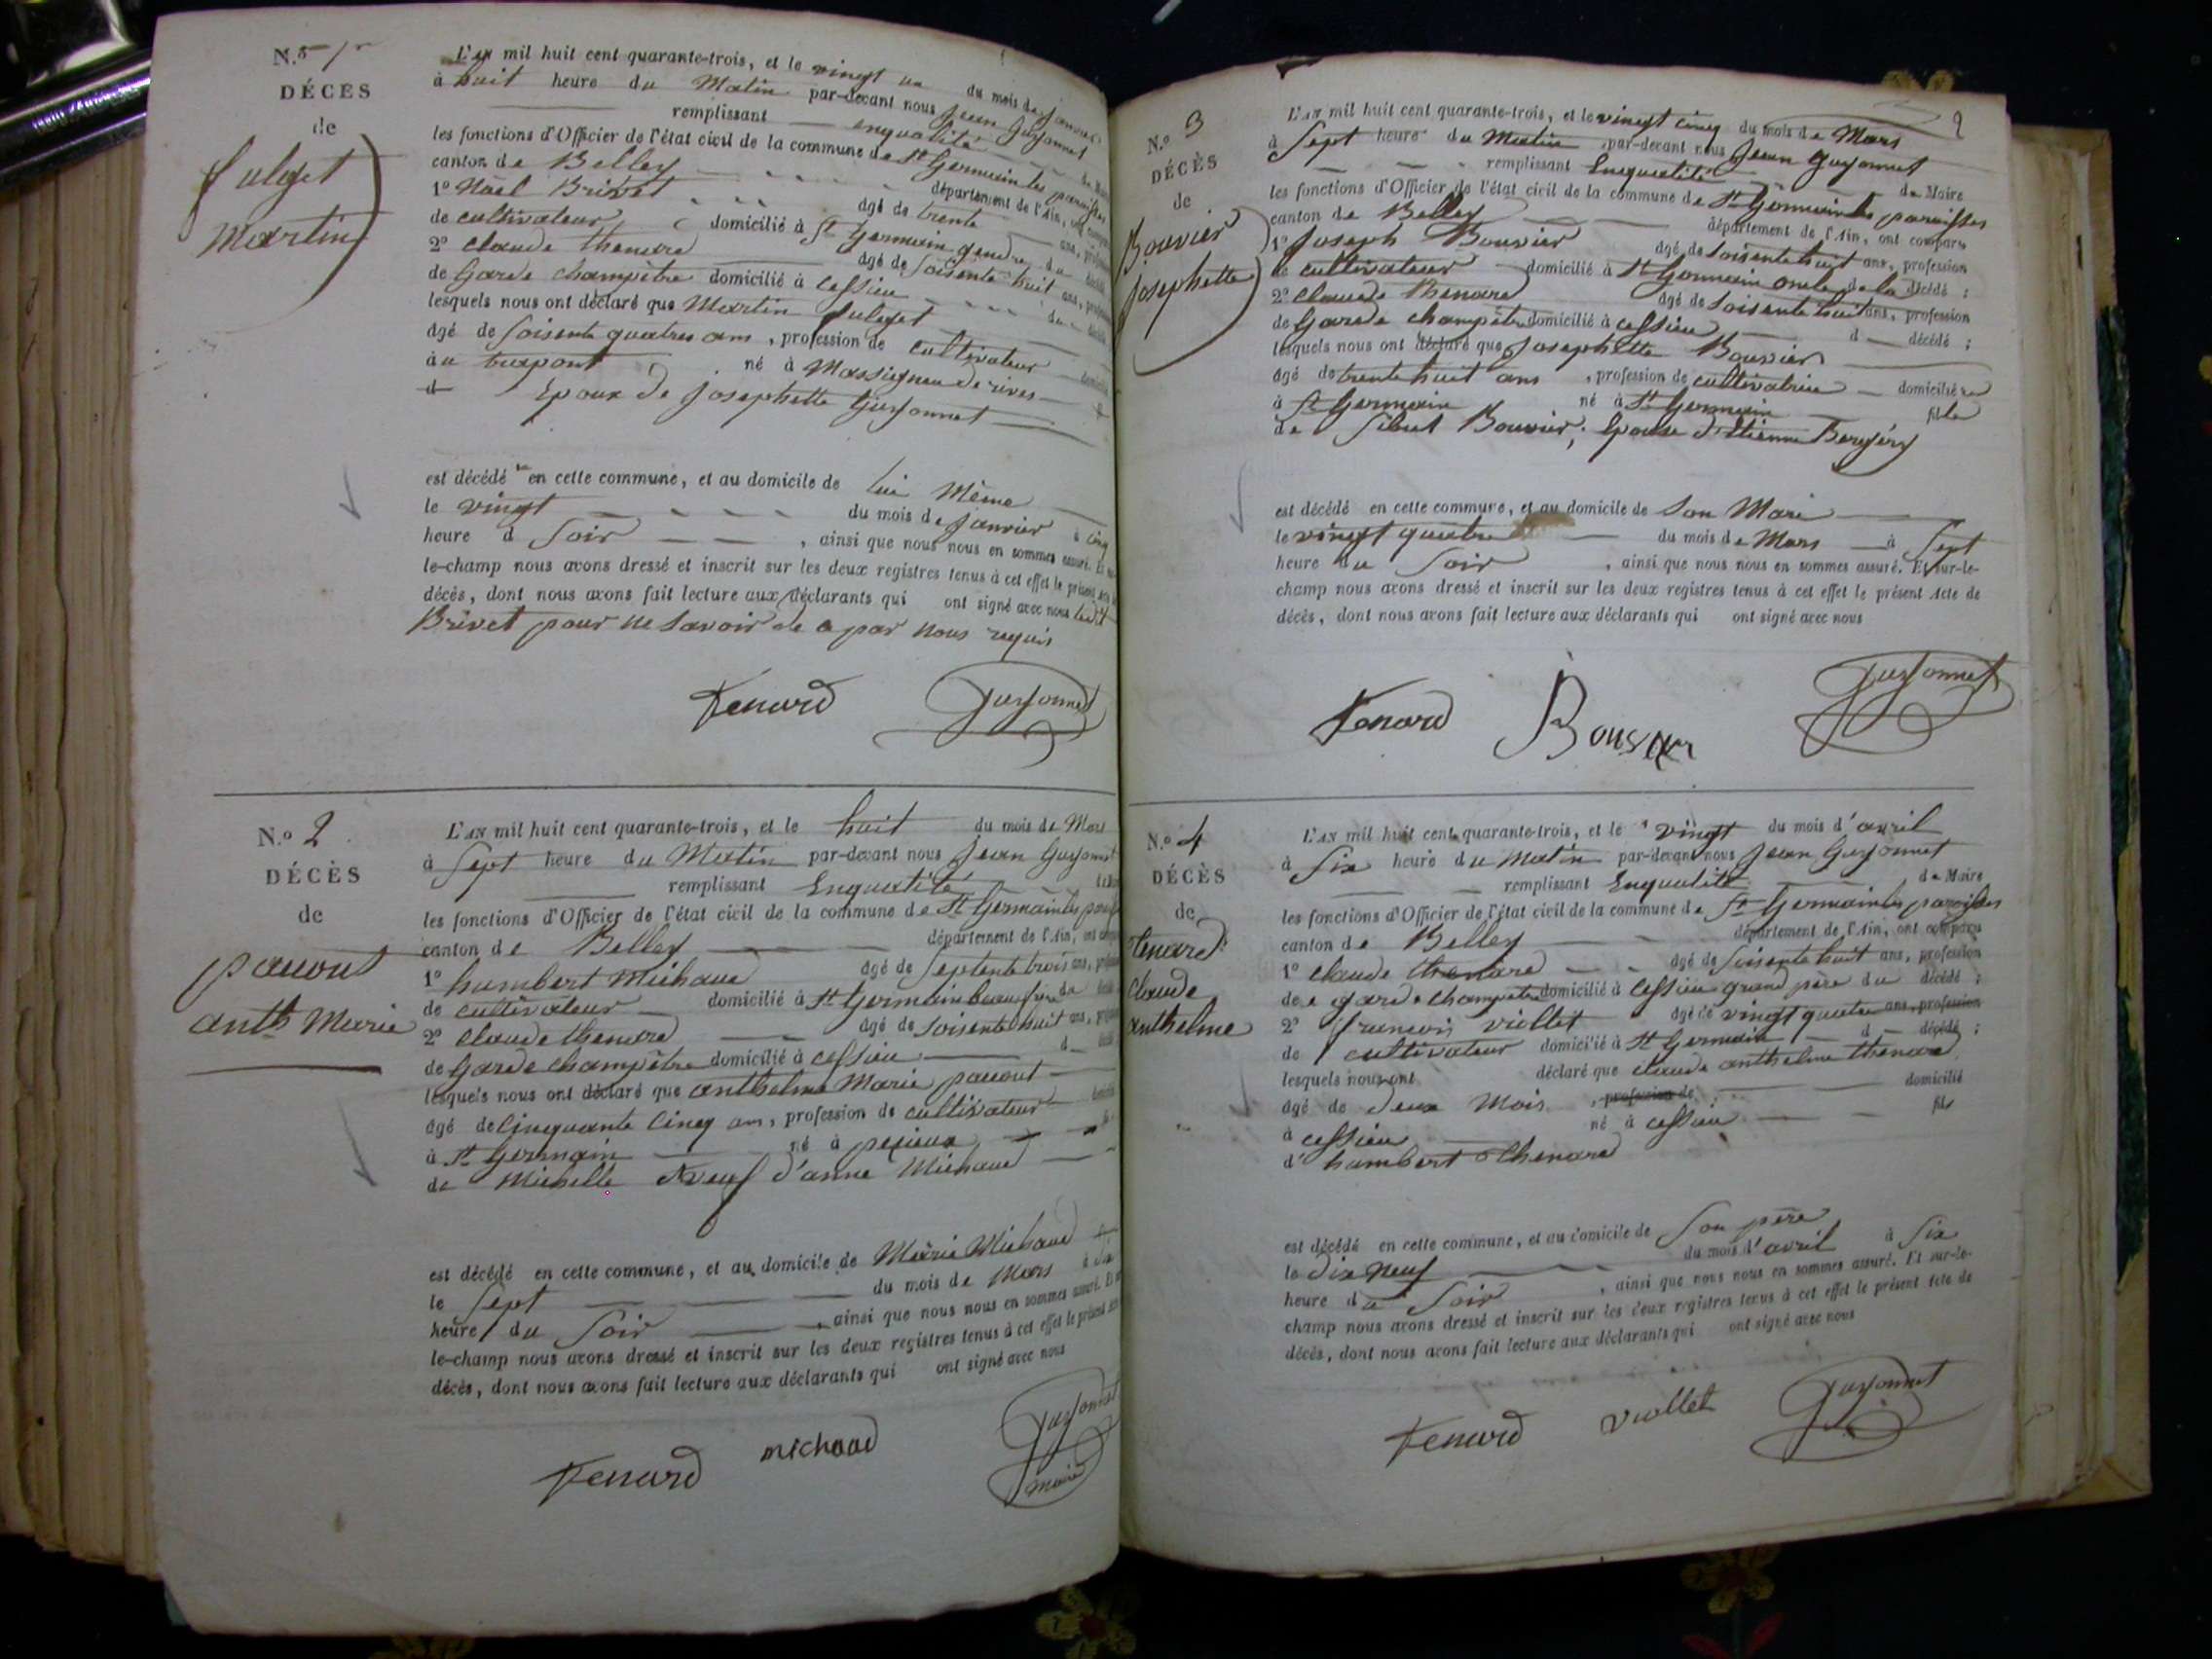 N.o 1er
DÉCÈS
de
fulget
Martin
L'AN mil huit cent quarante-trois, et le vingt un du mois de janvier
à huit heure du Matin par-devant nous Jean Guyonnet
remplissant enqualité de
les fonctions d'Officier de l'état civil de la commune de St Germain les paroisses
canton de Belley département de l'Ain, ont
1o Noël Brivet âgé de trente ans,
de cultivateur domicilié à St Germain gendre du
2o Claude thenare âgé de soisente huit ans,
de Garde champêtre domicilié à cessieu
lesquels nous ont déclaré que Martin fulget
âgé de soisente quatres ans, profession de cultivateur
au trapont né à Massigneu de rives
Epoux de josephette Guyonnet
est décédé en cette commune, et au domicile de lui Même
le vingt du mois de janvier à cinq
heure d Soir, ainsi que nous nous en sommes assuré. Et
le-champ nous avons dressé et inscrit sur les deux registres tenus à cet effet le présent acte
décès, dont nous avons fait lecture aux déclarants qui ont signé avec nous ledit
Brivet pour ne Savoir de a par nous requis
Tenard Guyonnet
N.o 2
DÉCÈS
de
pauout
anth Marie
L'AN mil huit cent quarante-trois, et le huit du mois de Mars
à Sept heure du Matin par-devant nous Jean Guyonnet
remplissant Enqualité
les fonctions d'Officier de l'état civil de la commune de St Germain les
canton de Belley département de l'Ain, ont
1o humbert Michaud âgé de Septente trois ans,
de cultivateur domicilié à St Germain beaufrere du
2o Claude thenare âgé de soisente huit ans,
de Garde champêtre domicilié à cessieu d
lesquels nous ont déclaré que anthelme Marie pauout
âgé de Cinquante Cinq ans, profession de cultivateur
à St Germain né à pezieux
de Michelle Veuf d'anne Michaud
est décédé en cette commune, et au domicile de Marie Michaud
le Sept du mois de Mars à dix
heure du Soir, ainsi que nous nous en sommes assuré. Et
le-champ nous avons dressé et inscrit sur les deux registres tenus à cet effet le présent
décès, dont nous avons fait lecture aux déclarants qui ont signé avec nous
Tenard michaud Guyonnet
maire
2
N.o 3
DÉCÈS
de
Bouvier
Josephette
L'AN mil huit cent quarante-trois, et le vingt cinq du mois de Mars
à Sept heure du Matin par-devant nous Jean Guyonnet
remplissant Enqualité de Maire
les fonctions d'Officier de l'état civil de la commune de St Germain les paroisses
canton de Belley département de l'Ain, ont comparu
1o Joseph Bouvier âgé de soisente huit ans, profession
de cultivateur domicilié à St Germain oncle de la décédé ;
2o Claude thenare âgé de soisente huit ans, profession
de Garde champêtre domicilié à cessieu d décédé ;
lesquels nous ont déclaré que Josephette Bouvier
âgé de trente huit ans, profession de cultivatrice domiciliée
à St Germain né à St Germain fille
de Sibuet Bouvier, Epouse d'Etienne Bergéry
est décédé en cette commune, et au domicile de Son Mari
le vingt quatre du mois de Mars à Sept
heure du Soir, ainsi que nous nous en sommes assuré. Et sur-le-
champ nous avons dressé et inscrit sur les deux registres tenus à cet effet le présent Acte de
décès, dont nous avons fait lecture aux déclarants qui ont signé avec nous
Tenard Bouvier Guyonnet
N.o 4
DÉCÈS
de
tenard
Claude
Anthelme
L'AN mil huit cent quarante-trois, et le vingt du mois d'avril
à Six heure du Matin par-devant nous Jean Guyonnet
remplissant Enqualité de Maire
les fonctions d'Officier de l'état civil de la commune de St Germain les paroisses
canton de Belley département de l'Ain, ont comparu
1o claude thenare âgé de soisente huit ans, profession
de garde champetre domicilié à cessieu grand père du décédé ;
2o francois viollet âgé de vingt quatre ans, profession
de cultivateur domicilié à St Germain d décédé ;
lesquels nous ont déclaré que claude anthelme thenare
âgé de deux Mois, profession de domicilié
à cessieu né à cessieu fils
d' humbert thenare
est décédé en cette commune, et au domicile de Son père
le Dix Neuf du mois d'avril à Six
heure du Soir, ainsi que nous nous en sommes assuré. Et sur-le-
champ nous avons dressé et inscrit sur les deux registres tenus à cet effet le présent Acte de
décès, dont nous avons fait lecture aux déclarants qui ont signé avec nous
Tenard viollet Guyonnet